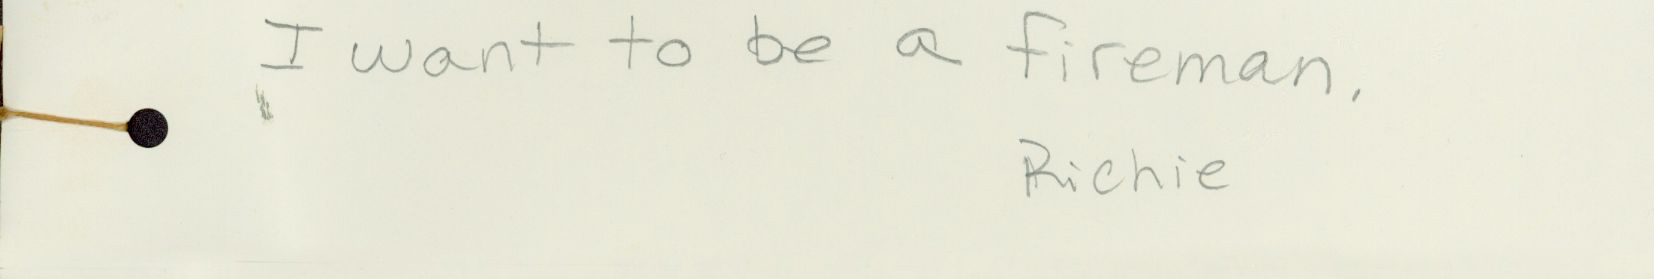 I want to be a fireman.
Richie